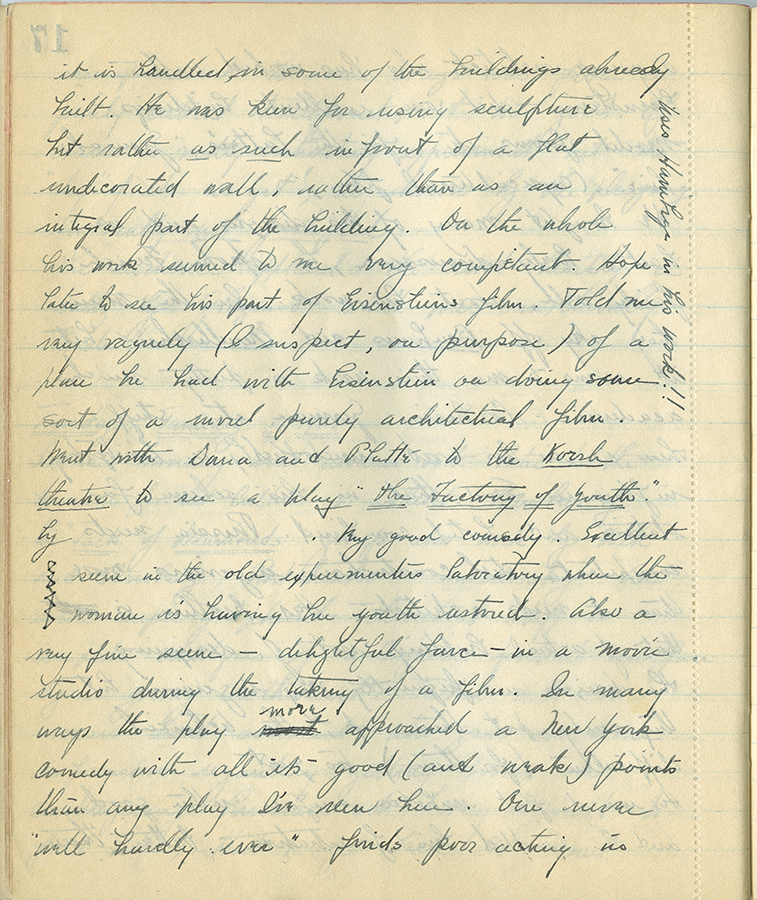 it is handled, in some of the buildings already
built. He was keen for using sculpture
but rather as such in front of a flat
undecorated wall, rather than as an
integral part of the building. On the whole
his work seemed to me very competent. Hope
later to see his part of Eisenstein's film. Told me
very vaguely (I suspect, on purpose) of a
plan he had with Eisenstein on doing some
sort of a more purely architectural film.
Went with Dana and Platte to the Korsh
theatre to see a play "the Factory of Youth".
by . Very good comedy. Excellent
scene in the old experimenters laboratory where the
woman is having her youth restored. Also a
very fine scene – delightful farce – in a movie
studio during the taking of a film. In many
more
ways the play most approached a New York
comedy with all its good (and weak) points
than any play I've seen here. One never
"well hardly ever" finds poor acting in
Uses Hambidge in his work!!
17